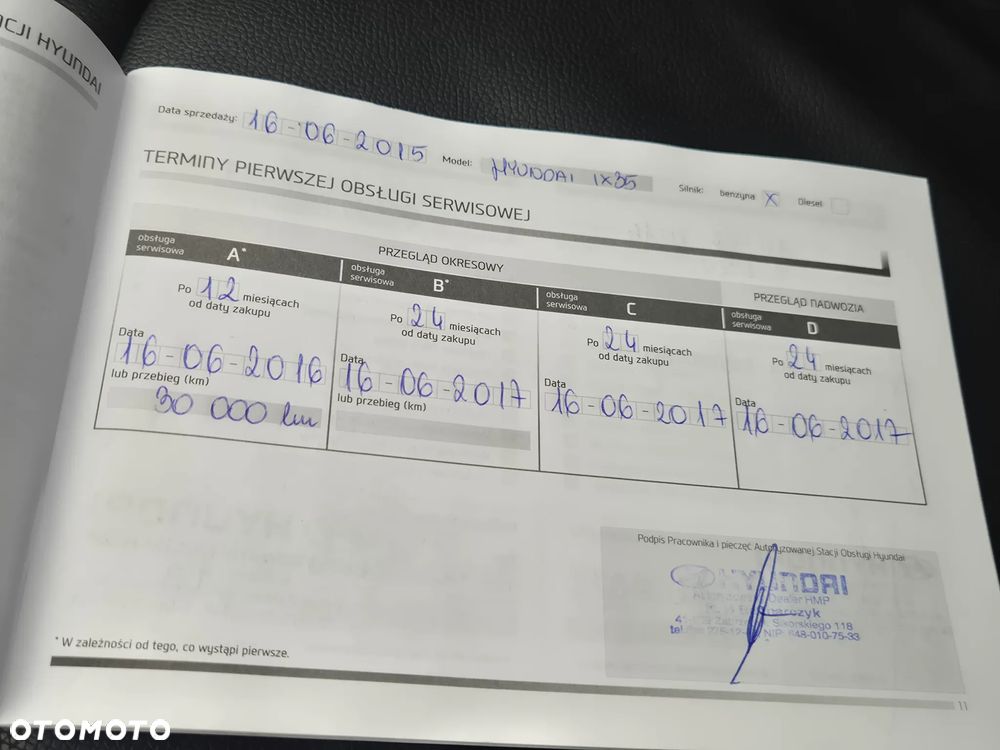 CJI HYUNDAI
Data sprzedaży: 16-06-2015 Model: HYUNDAI IX35 Silnik: benzyna X Diesel
TERMINY PIERWSZEJ OBSŁUGI SERWISOWEJ
PRZEGLĄD OKRESOWY
PRZEGLĄD NADWOZIA
obsługa serwisowa A*
Po 12 miesiącach
od daty zakupu
Data
16-06-2016
lub przebieg (km)
30 000 km
obsługa serwisowa B*
Po 24 miesiącach
od daty zakupu
Data
16-06-2017
lub przebieg (km)
obsługa serwisowa C
Po 24 miesiącach
od daty zakupu
Data
16-06-2017
obsługa serwisowa D
Po 24 miesiącach
od daty zakupu
Data
16-06-2017
Podpis Pracownika i pieczęć Autoryzowanej Stacji Obsługi Hyundai
HYUNDAI
Dealer HMP
Sikorskiego 118
NIP: 648-010-75-33
* W zależności od tego, co wystąpi pierwsze.
11
OTOMOTO